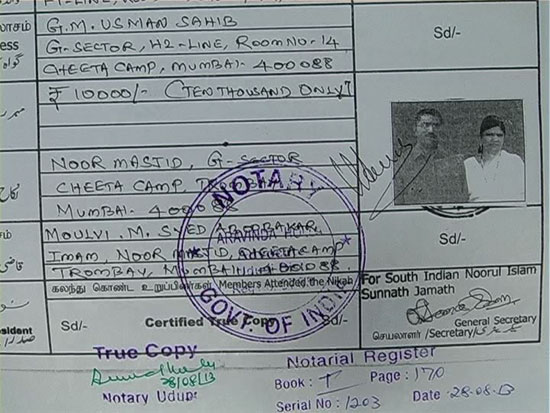 G.M. USMAN SAHIB
G-SECTOR, H2-LINE, ROOM NO-14
CHEETA CAMP, MUMBAI- 400088
Sd/-
₹ 10000/- (TEN THOUSAND ONLY)
NOOR MASJID, G-SECTOR
CHEETA CAMP,
MUMBAI- 400088
MOULVI. M. SYED ABOOBAKAR
IMAM, NOOR MASJID, CHEETA CAMP
TROMBAY, MUMBAI - 400088.
Sd/-
NOTARY
ARAVINDA
GOVT. OF INDIA
கலந்து கொண்ட உறுப்பினர்கள் Members Attended the Nikah
For South Indian Noorul Islam
Sunnath Jamath
General Secretary
செயலாளர் /Secretary/
sident
Sd/-
Certified True Copy
Sd/-
True Copy
28/08/13
Notary Udupi
Notarial Register
Book: I Page: 170
Serial No: 1203 Date: 28-08-13